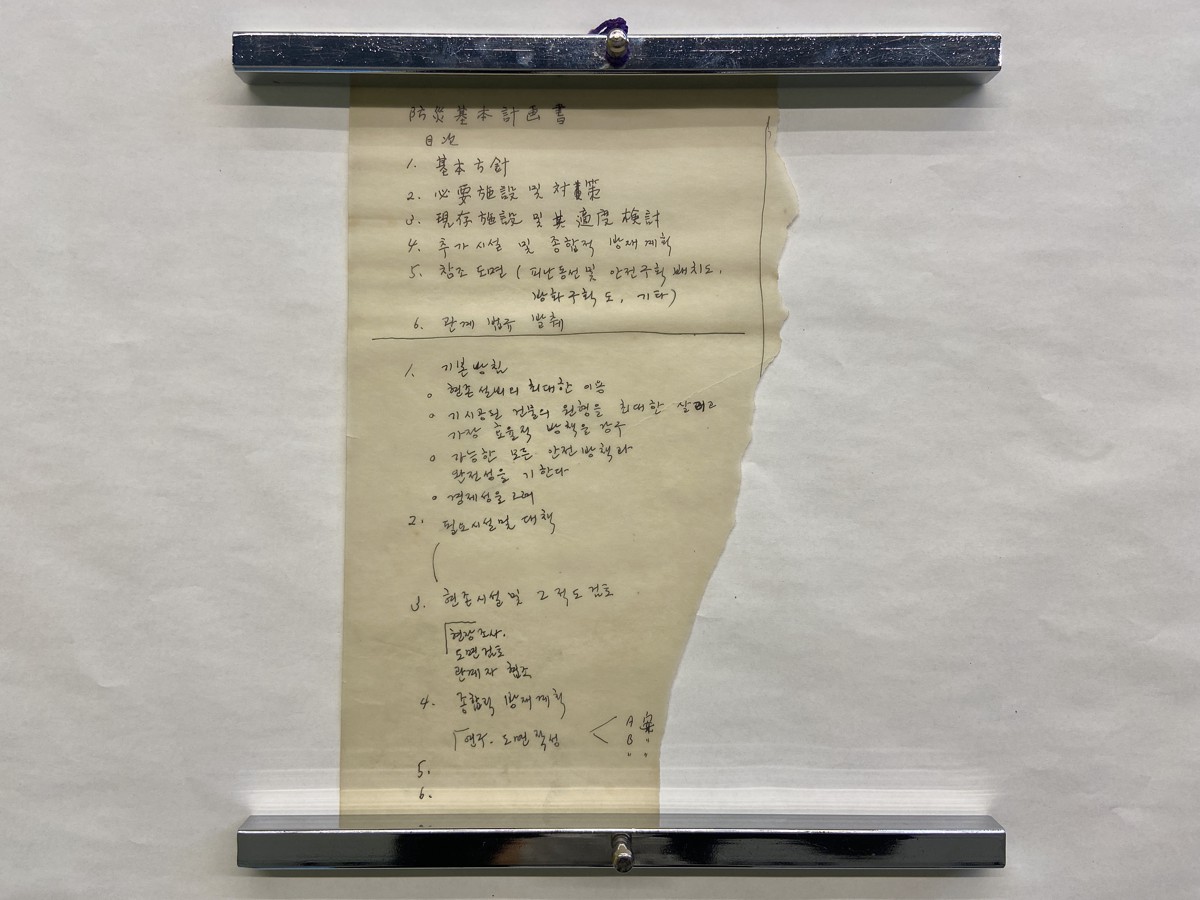 防災基本計画書
目次
1. 基本方針
2. 必要施設 및 対策
3. 現存施設 및 其 適度 検討
4. 추가시설 및 종합적 방재계획
5. 참조 도면 ( 피난동선 및 안전구획 배치도,
방화구획도, 기타)
6. 관계 법규 발췌
1. 기본방침
o 현존설비의 최대한 이용
o 기시공된 건물의 원형을 최대한 살리고
가장 효율적 방책을 강구
o 가능한 모든 안전방책과
완전성을 기한다
o 경제성을 고려
2. 필요시설 및 대책
3. 현존시설 및 그 적도 검토
현장조사.
도면검토
관계자 협조
4. 종합적 방재계획
연구. 도면작성
A 案
B "
" "
5.
6.